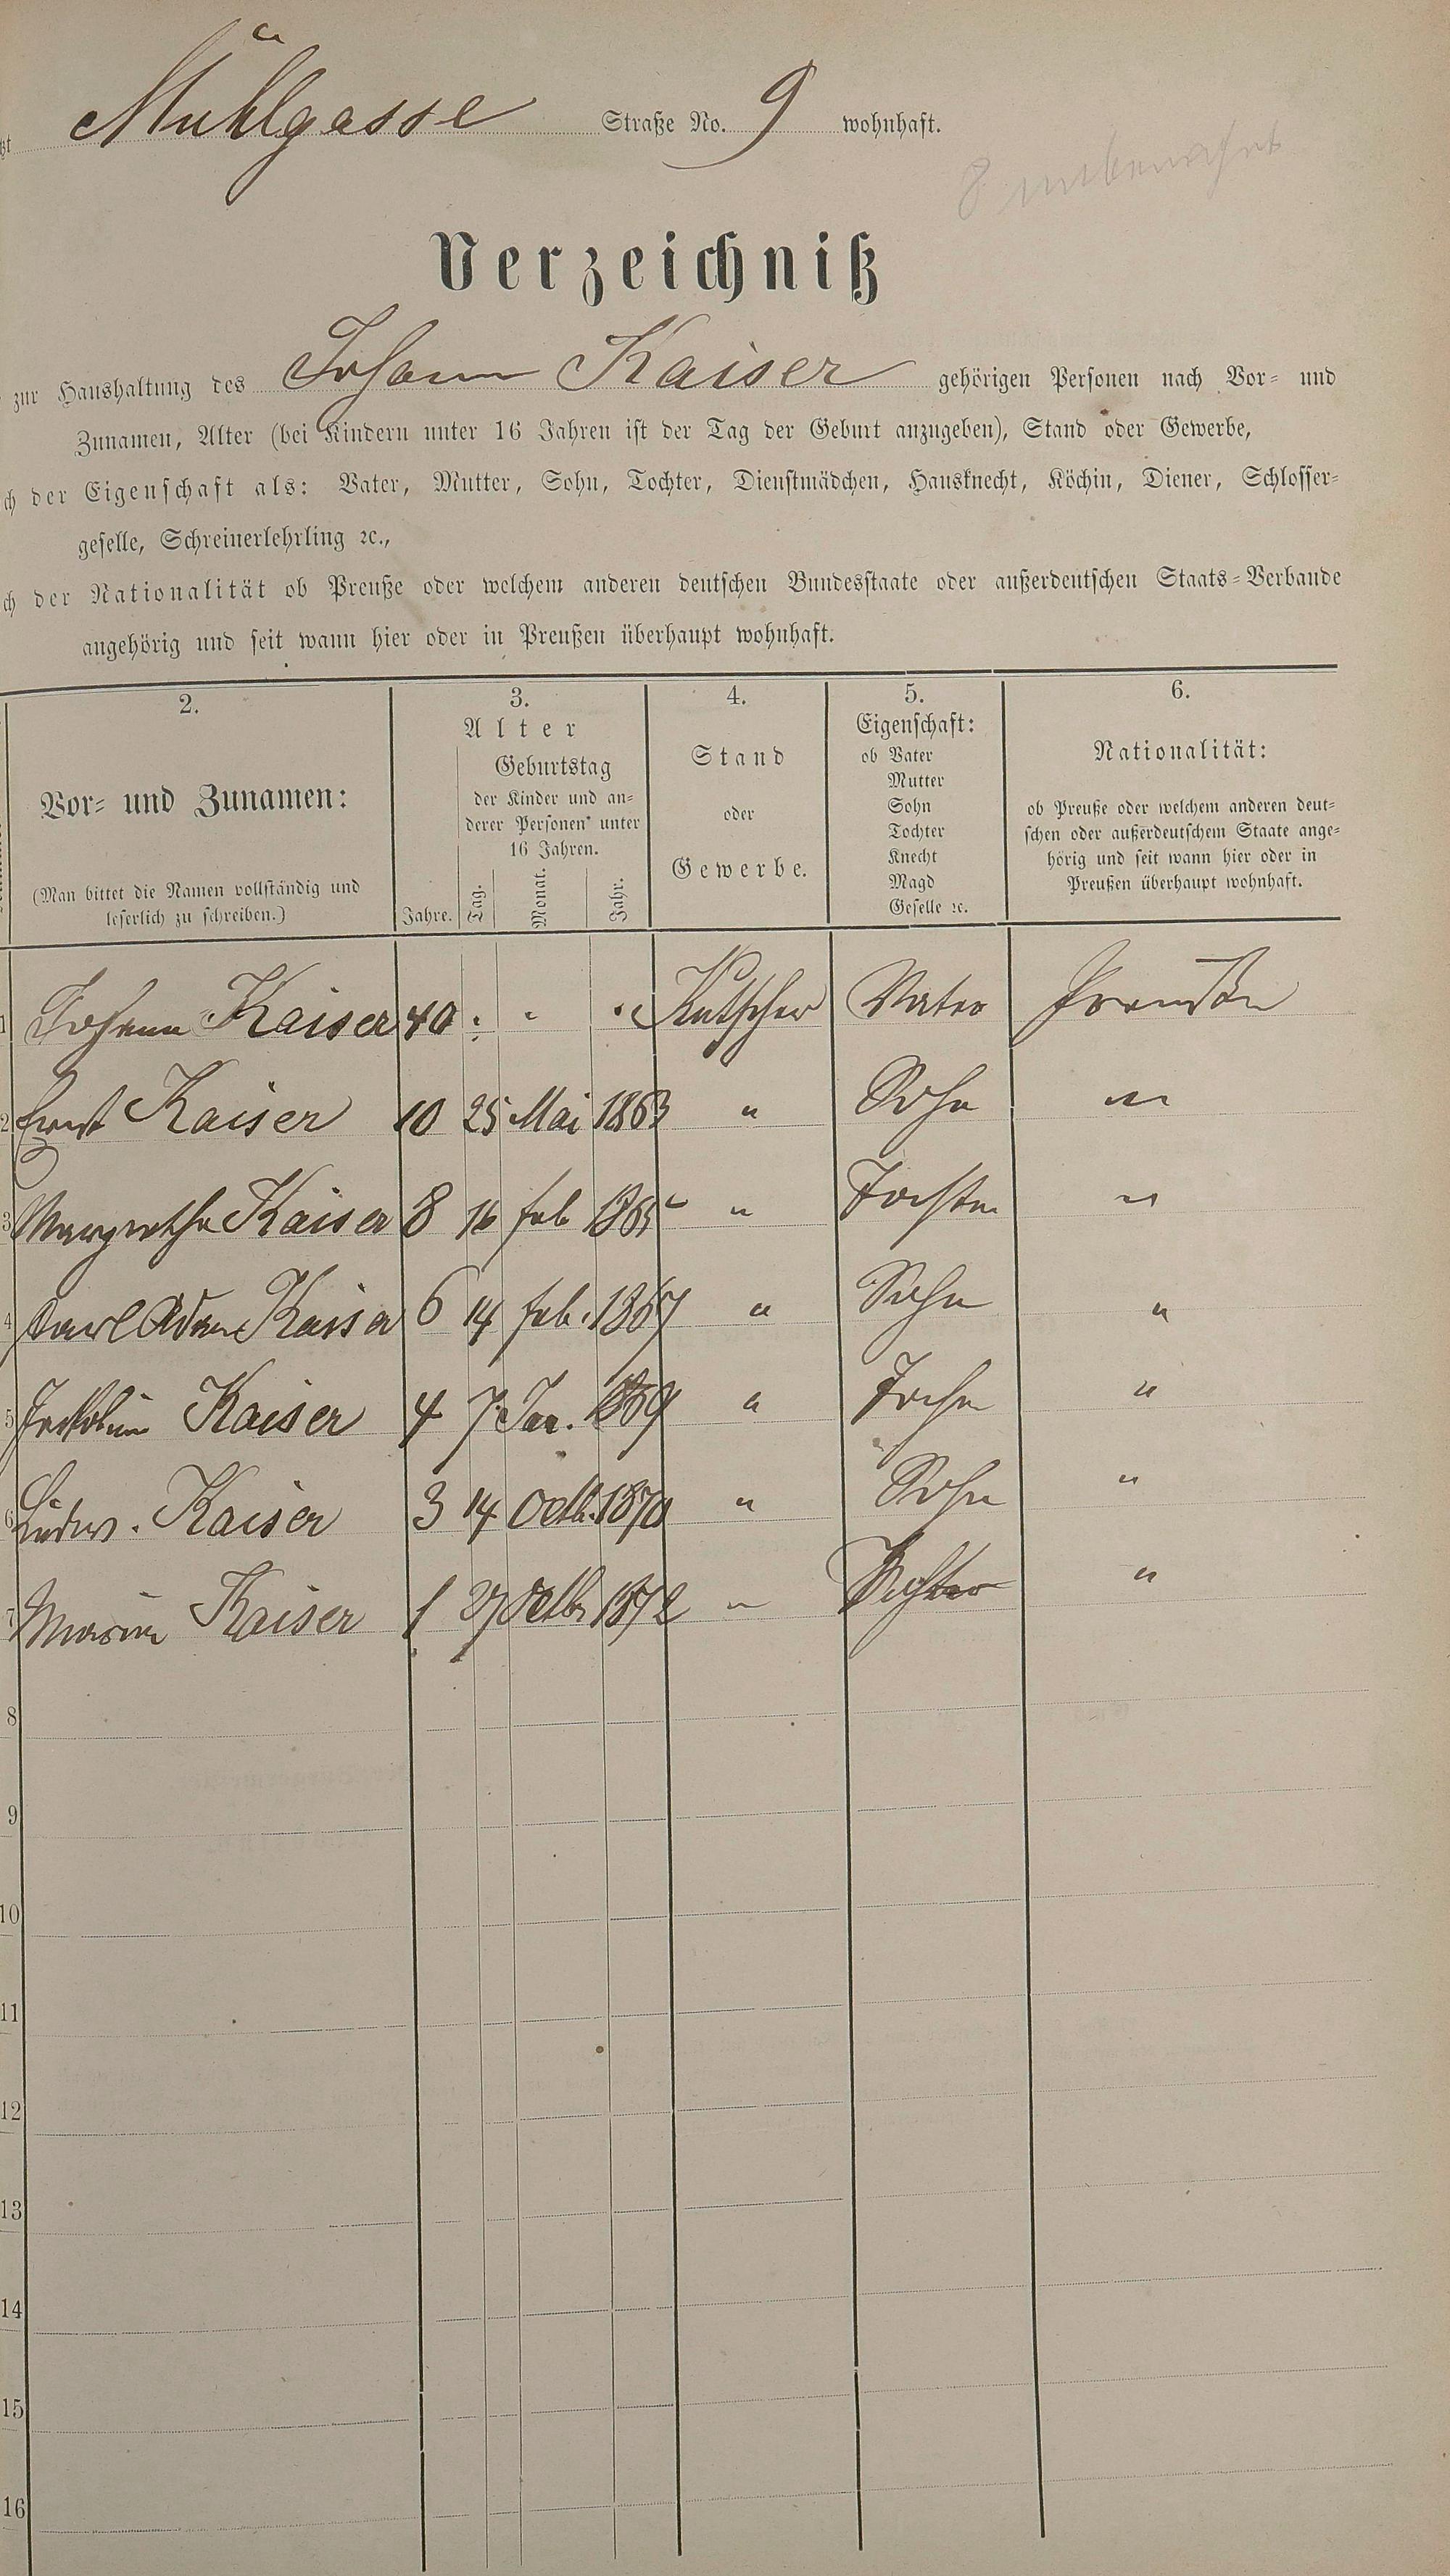 Mühlgasse Straße No. 9 wohnhaft.
Verzeichniß
zur Haushaltung des Johann Kaiser gehörigen Personen nach Vor- und
Zunamen, Alter (bei Kindern unter 16 Jahren ist der Tag der Geburt anzugeben), Stand oder Gewerbe,
der Eigenschaft als: Vater, Mutter, Sohn, Tochter, Dienstmädchen, Hausknecht, Köchin, Diener, Schlosser-
geselle, Schreinerlehrling ꝛc.,
der Nationalität ob Preuße oder welchem anderen deutschen Bundesstaate oder außerdeutschen Staats-Verbande
angehörig und seit wann hier oder in Preußen überhaupt wohnhaft.
2. 3. 4. 5. 6.
Vor- und Zunamen:
(Man bittet die Namen vollständig und
leserlich zu schreiben.)
Alter
Geburtstag
der Kinder und an-
derer Personen unter
16 Jahren.
Jahre. Tag. Monat. Jahr.
Stand
oder
Gewerbe.
Eigenschaft:
ob Vater
Mutter
Sohn
Tochter
Knecht
Magd
Geselle ꝛc.
Nationalität:
ob Preuße oder welchem anderen deut-
schen oder außerdeutschem Staate ange-
hörig und seit wann hier oder in
Preußen überhaupt wohnhaft.
1 Johann Kaiser 40 " " " Kutscher Vater Preuße
2 Ernst Kaiser 10 25 Mai 1863 " Sohn "
3 Margrethe Kaiser 8 16 Feb 1865 " Tochter "
4 Karl Adam Kaiser 6 14 Feb. 1867 " Sohn "
5 Kaiser 4 7 Jan. 1869 " "
6 Ludw. Kaiser 3 14 Octb. 1870 " Sohn "
7 Maria Kaiser 1 27 Octb. 1872 " Tochter "
8
9
10
11
12
13
14
15
16